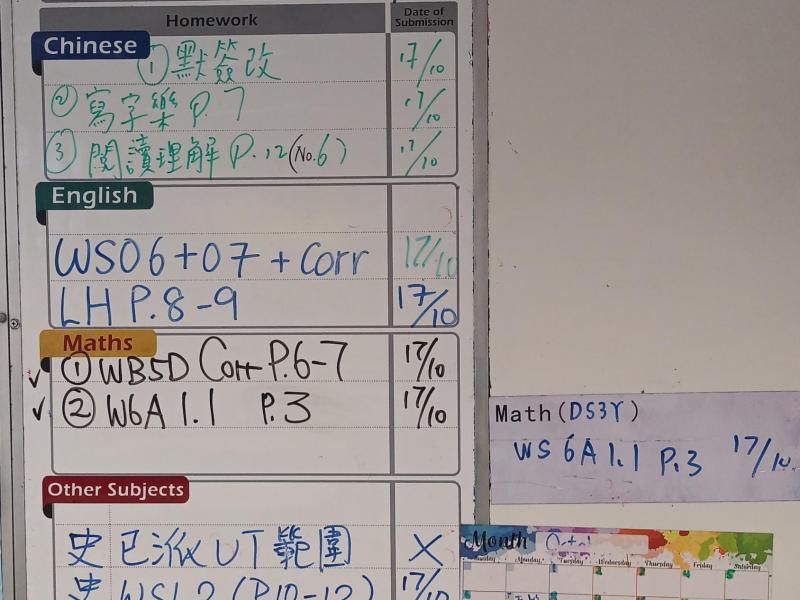 Homework
Date of Submission
Chinese
① 默簽改 17/10
② 寫字樂 P.7 17/10
③ 閱讀理解 P.12 (No.6) 17/10
English
WS06+07 + Corr 17/10
LH P.8-9 17/10
Maths
✓ ① WB5D Corr P.6-7 17/10
✓ ② W6A 1.1 P.3 17/10
Math(DS3Y)
WS 6A 1.1 P.3 17/10
Other Subjects
史 已派 UT 範圍 X
史 WS1.2 (P.10-12) 17/10
Month
Monday Tuesday Wednesday Thursday Friday Saturday
4 5